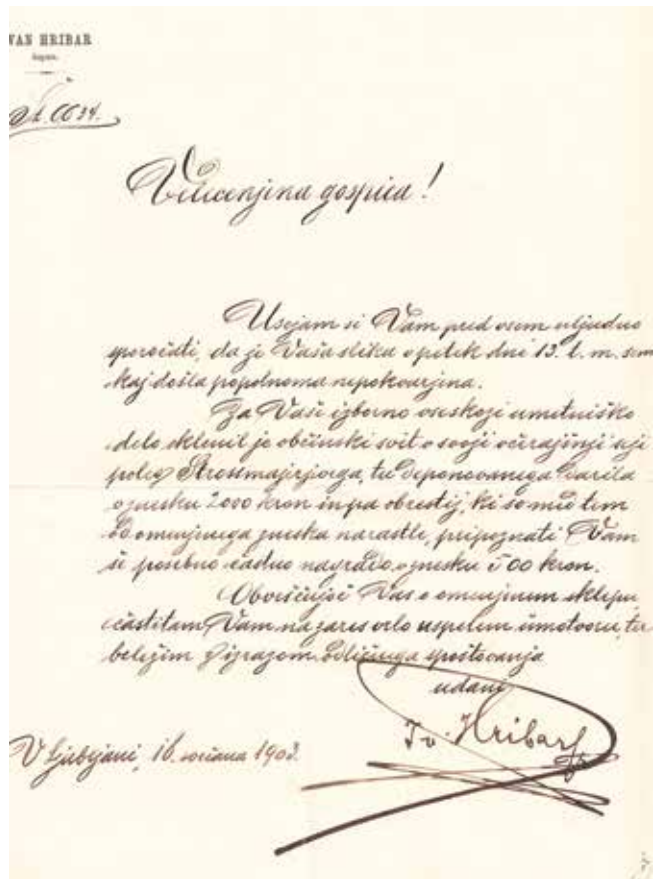 VAN HRIBAR
župan.
Velecenjena gospica!
Usojam si Vam pred vsem uljudno
sporočati, da je Vaša slika v petek dné 13. t. m. sem
kaj došla popolnoma nepokvarjena.
Za Vaše izborno vseskozi umetniško
delo sklenil je občinski svèt v svoji včerajšnji seji
poleg Strossmajerjevega, tu deponovanega darila
v znesku 2000 kron in pa obrestij, ki so med tem
od omenjenega zneska narastle, pripoznati Vam
še posebno častno nagrado v znesku 500 kron.
Obveščujoč Vas o omenjenem sklepu,
čestitam Vam na zares vrlo uspelem umotvoru, ter
beležim z izrazom odličnega spoštovanja
udani
Iv. Hribar
V Ljubljani, 16. sočana 1903.